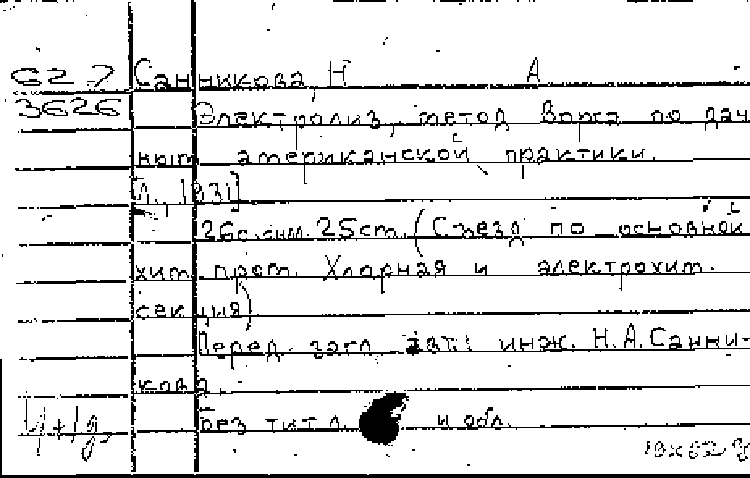 62-7 Санникова, Н А
3626 Электролиз, метод Ворса по дан-
ным американской практики.
Л., 1931]
26с.снм. 25cm. (Съезд по основной
хим. пром. Хларная и электрохим.
секция)
Перед загл. авт.: инж. Н.А.Санни-
кова.
Без тит. л. и обл.
4+1д